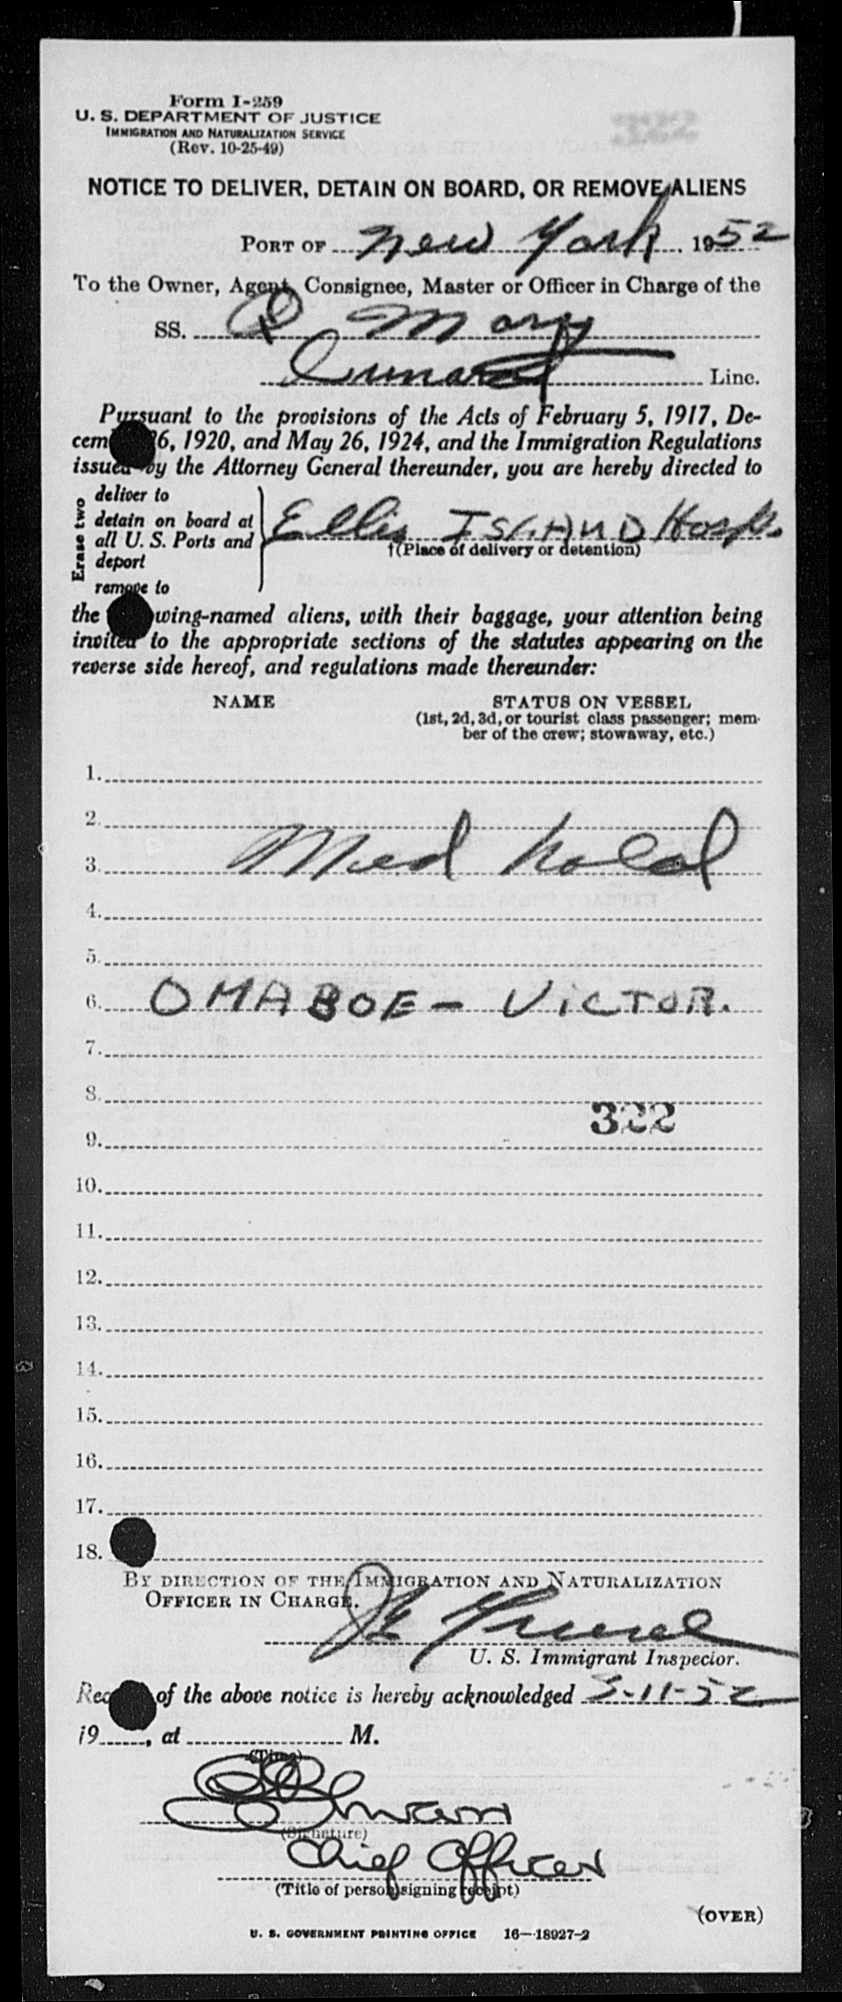 Form I-259
U. S. DEPARTMENT OF JUSTICE
IMMIGRATION AND NATURALIZATION SERVICE
(Rev. 10-25-49)
322
NOTICE TO DELIVER, DETAIN ON BOARD, OR REMOVE ALIENS
PORT OF New York 1952
To the Owner, Agent, Consignee, Master or Officer in Charge of the
SS. Q Mary
Cunard Line.
Pursuant to the provisions of the Acts of February 5, 1917, De-
cem 26, 1920, and May 26, 1924, and the Immigration Regulations
issued by the Attorney General thereunder, you are hereby directed to
Erase two
deliver to
detain on board at
all U. S. Ports and
deport
remove to
Ellis ISLAND Hosp.
†(Place of delivery or detention)
the wing-named aliens, with their baggage, your attention being
invited to the appropriate sections of the statutes appearing on the
reverse side hereof, and regulations made thereunder:
NAME STATUS ON VESSEL
(1st, 2d, 3d, or tourist class passenger; mem-
ber of the crew; stowaway, etc.)
1.
2.
3. Med hold
4.
5.
6. OMABOE - VICTOR.
7.
8.
322
9.
10.
11.
12.
13.
14.
15.
16.
17.
18.
BY DIRECTION OF THE IMMIGRATION AND NATURALIZATION
OFFICER IN CHARGE.
U. S. Immigrant Inspector.
Rec of the above notice is hereby acknowledged 3-11-52
19, at M.
(Time)
(Signature)
Chief Officer
(Title of person signing receipt)
(OVER)
U. S. GOVERNMENT PRINTING OFFICE 16—18927-2